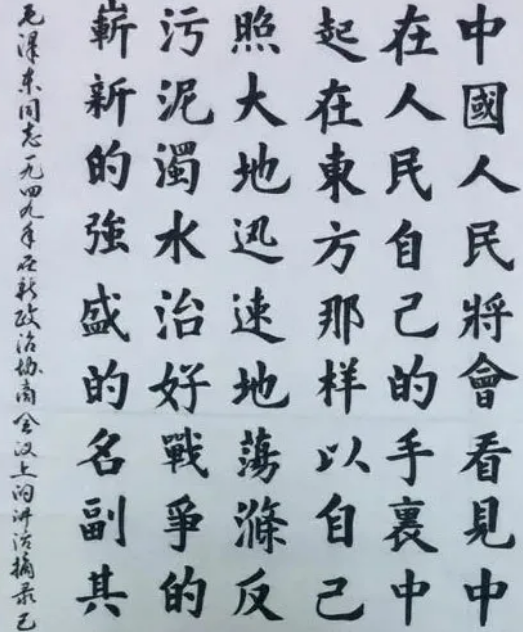 中國人民將會看見中
在人民自己的手裏中
起在東方那样以自己
照大地迅速地蕩滌反
污泥濁水治好戰爭的
嶄新的強盛的名副其
毛泽东同志一九四九年在新政治协商会议上的讲话摘录己